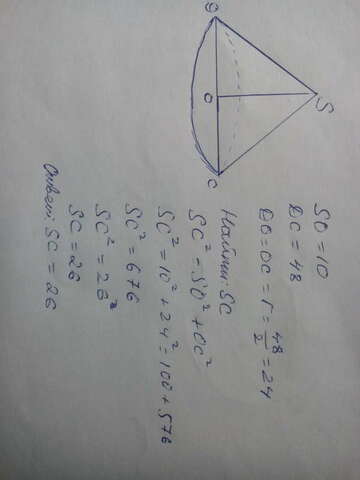 D
S
O
C
SO = 10
DC = 48
DO = OC = r = 48/2 = 24
Найти: SC
SC² = SO² + OC²
SC² = 10² + 24² = 100 + 576
SC² = 676
SC² = 26²
SC = 26
Ответ: SC = 26